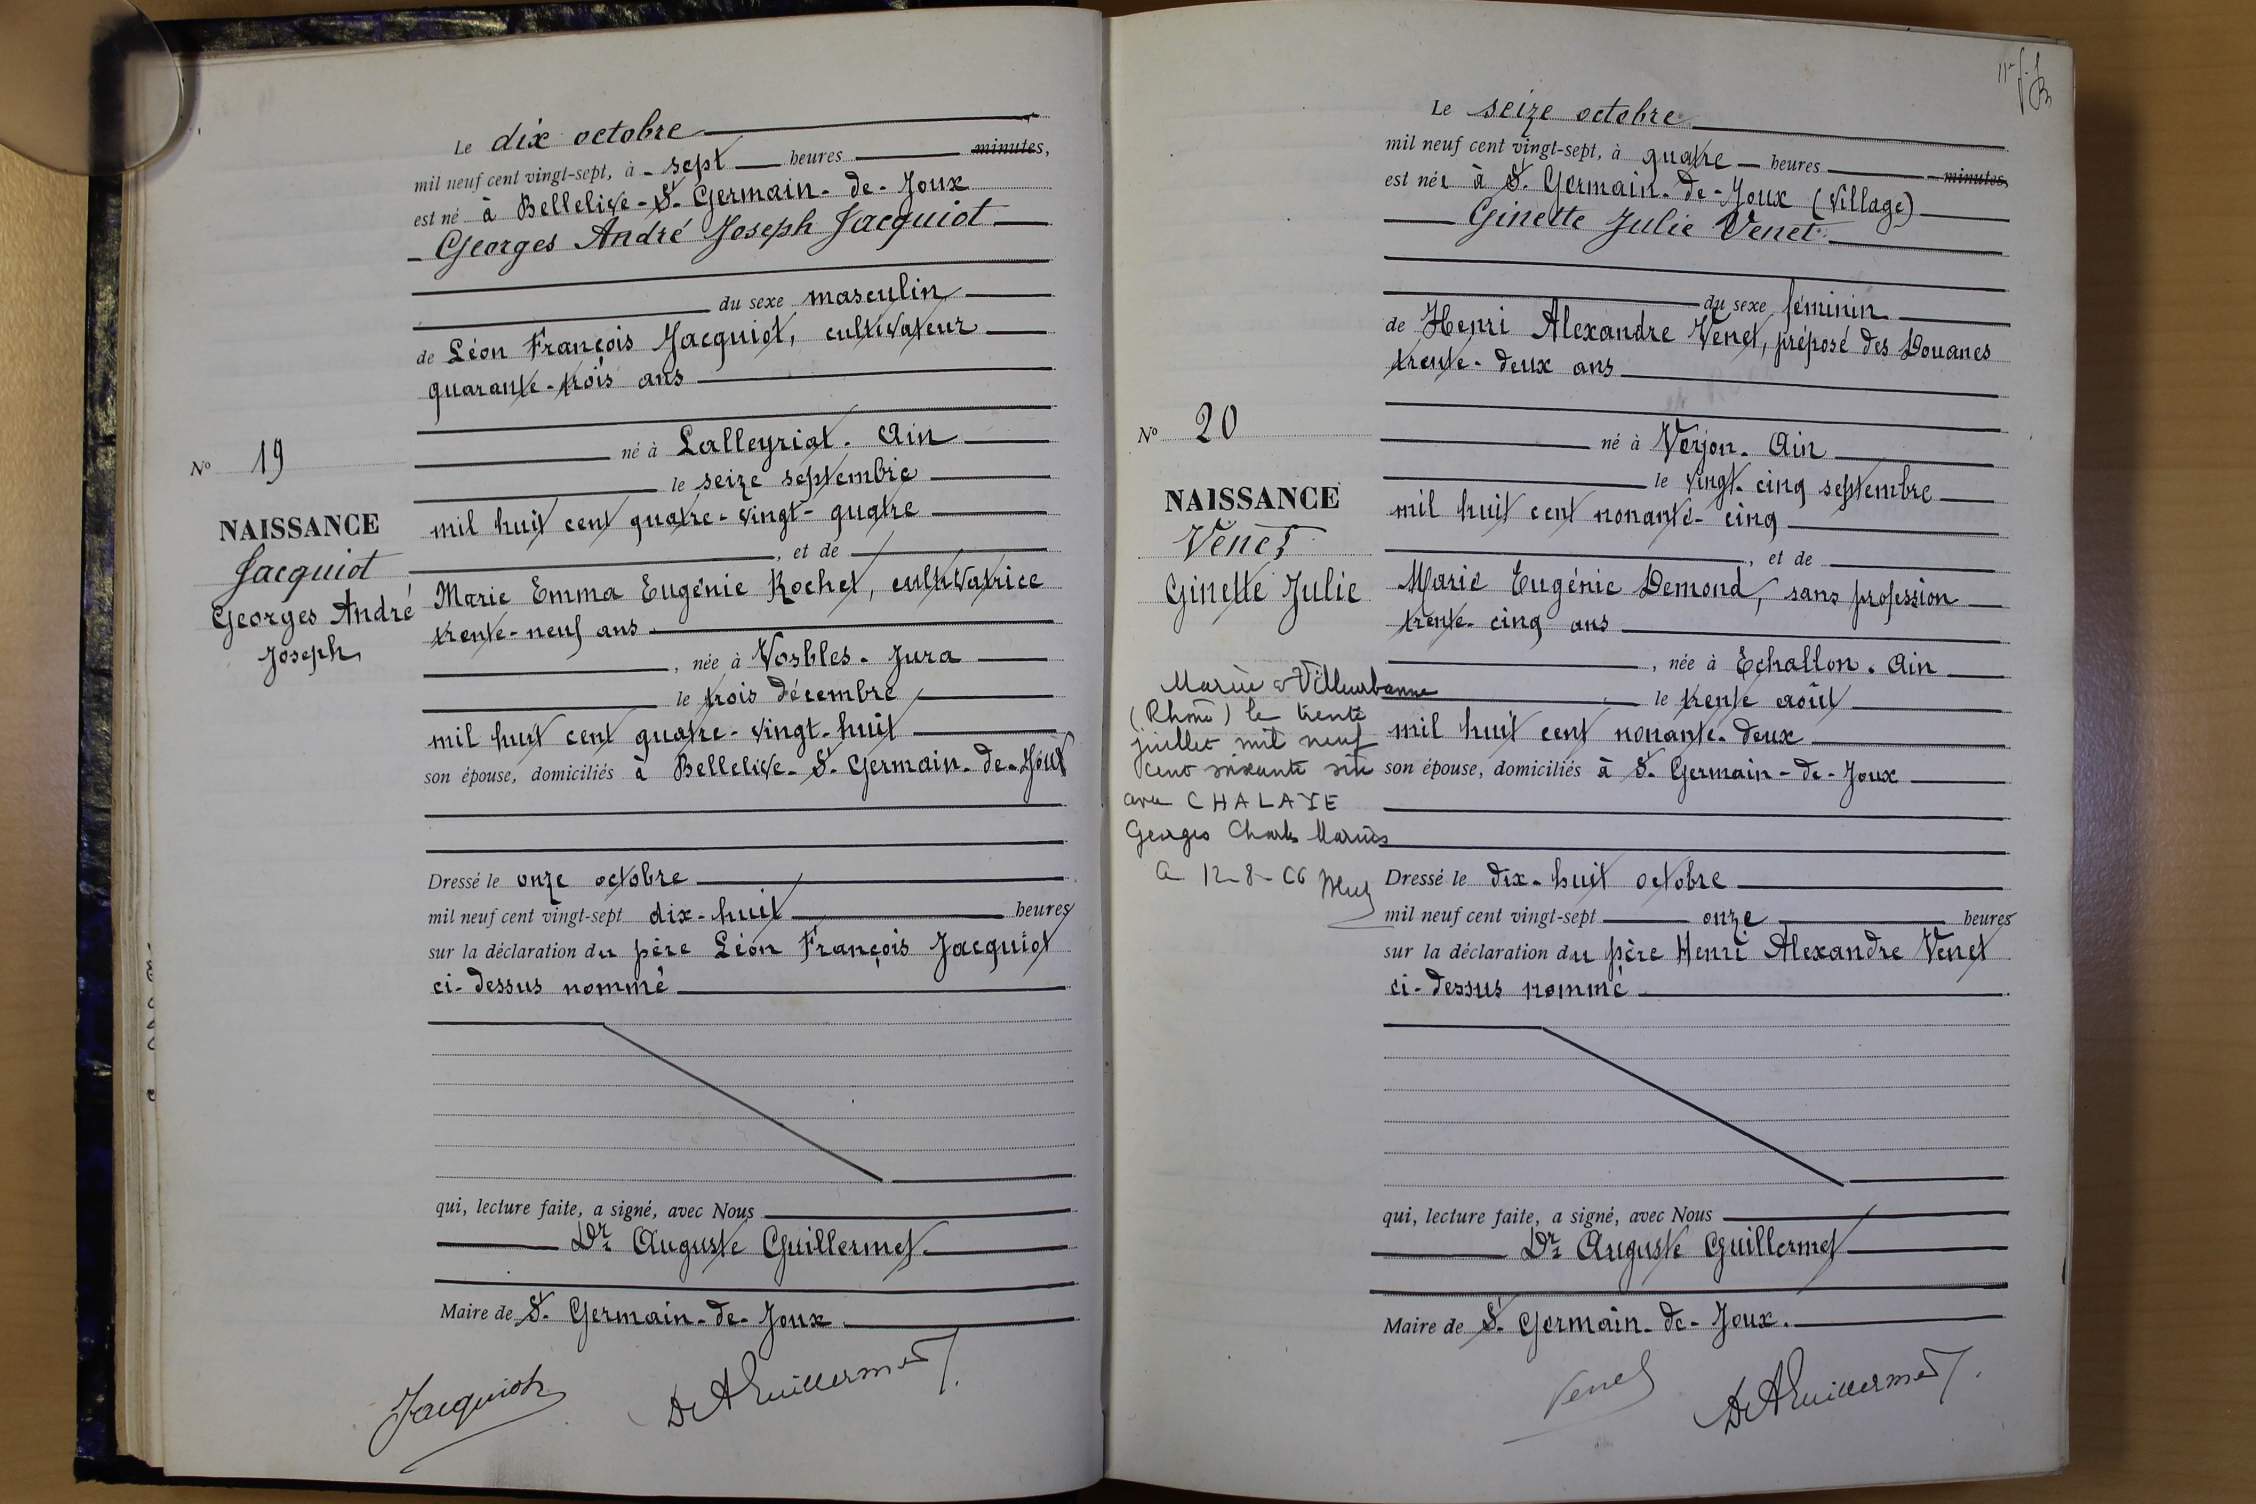 Le dix octobre
mil neuf cent vingt-sept, à sept heures minutes,
est né à Bellelive-St. Germain-de-Joux
Georges André Joseph Jacquiot
du sexe masculin
de Léon François Jacquiot, cultivateur
quarante-trois ans
né à Lalleyriat. Ain
le seize septembre
mil huit cent quatre-vingt-quatre
, et de
Marie Emma Eugénie Rochet, cultivatrice
trente-neuf ans
, née à Vosbles. Jura
le trois décembre
mil huit cent quatre-vingt-huit
son épouse, domiciliés à Bellelive-St. Germain-de-Joux
Dressé le onze octobre
mil neuf cent vingt-sept dix-huit heures
sur la déclaration du père Léon François Jacquiot
ci-dessus nommé
qui, lecture faite, a signé, avec Nous
Dr. Auguste Guillermet
Maire de St. Germain-de-Joux
Jacquiot
Dr A Guillermet
No 19
NAISSANCE
Jacquiot
Georges André
Joseph
Le seize octobre
mil neuf cent vingt-sept, à quatre heures minutes,
est née à St. Germain-de-Joux (Village)
Ginette Julie Venet
du sexe féminin
de Henri Alexandre Venet, préposé des Douanes
trente-deux ans
né à Verjon. Ain
le vingt-cinq septembre
mil huit cent nonante-cinq
, et de
Marie Eugénie Demond, sans profession
trente-cinq ans
, née à Echallon. Ain
le trente août
mil huit cent nonante-deux
son épouse, domiciliés à St. Germain-de-Joux
Dressé le dix-huit octobre
mil neuf cent vingt-sept onze heures
sur la déclaration du père Henri Alexandre Venet
ci-dessus nommé
qui, lecture faite, a signé, avec Nous
Dr. Auguste Guillermet
Maire de St. Germain-de-Joux.
Venet
Dr A Guillermet
No 20
NAISSANCE
Venet
Ginette Julie
Mariée à Villeurbanne
(Rhône) le trente
juillet mil neuf
cent soixante six
avec CHALAYE
Georges Charles Marius
12-8-66